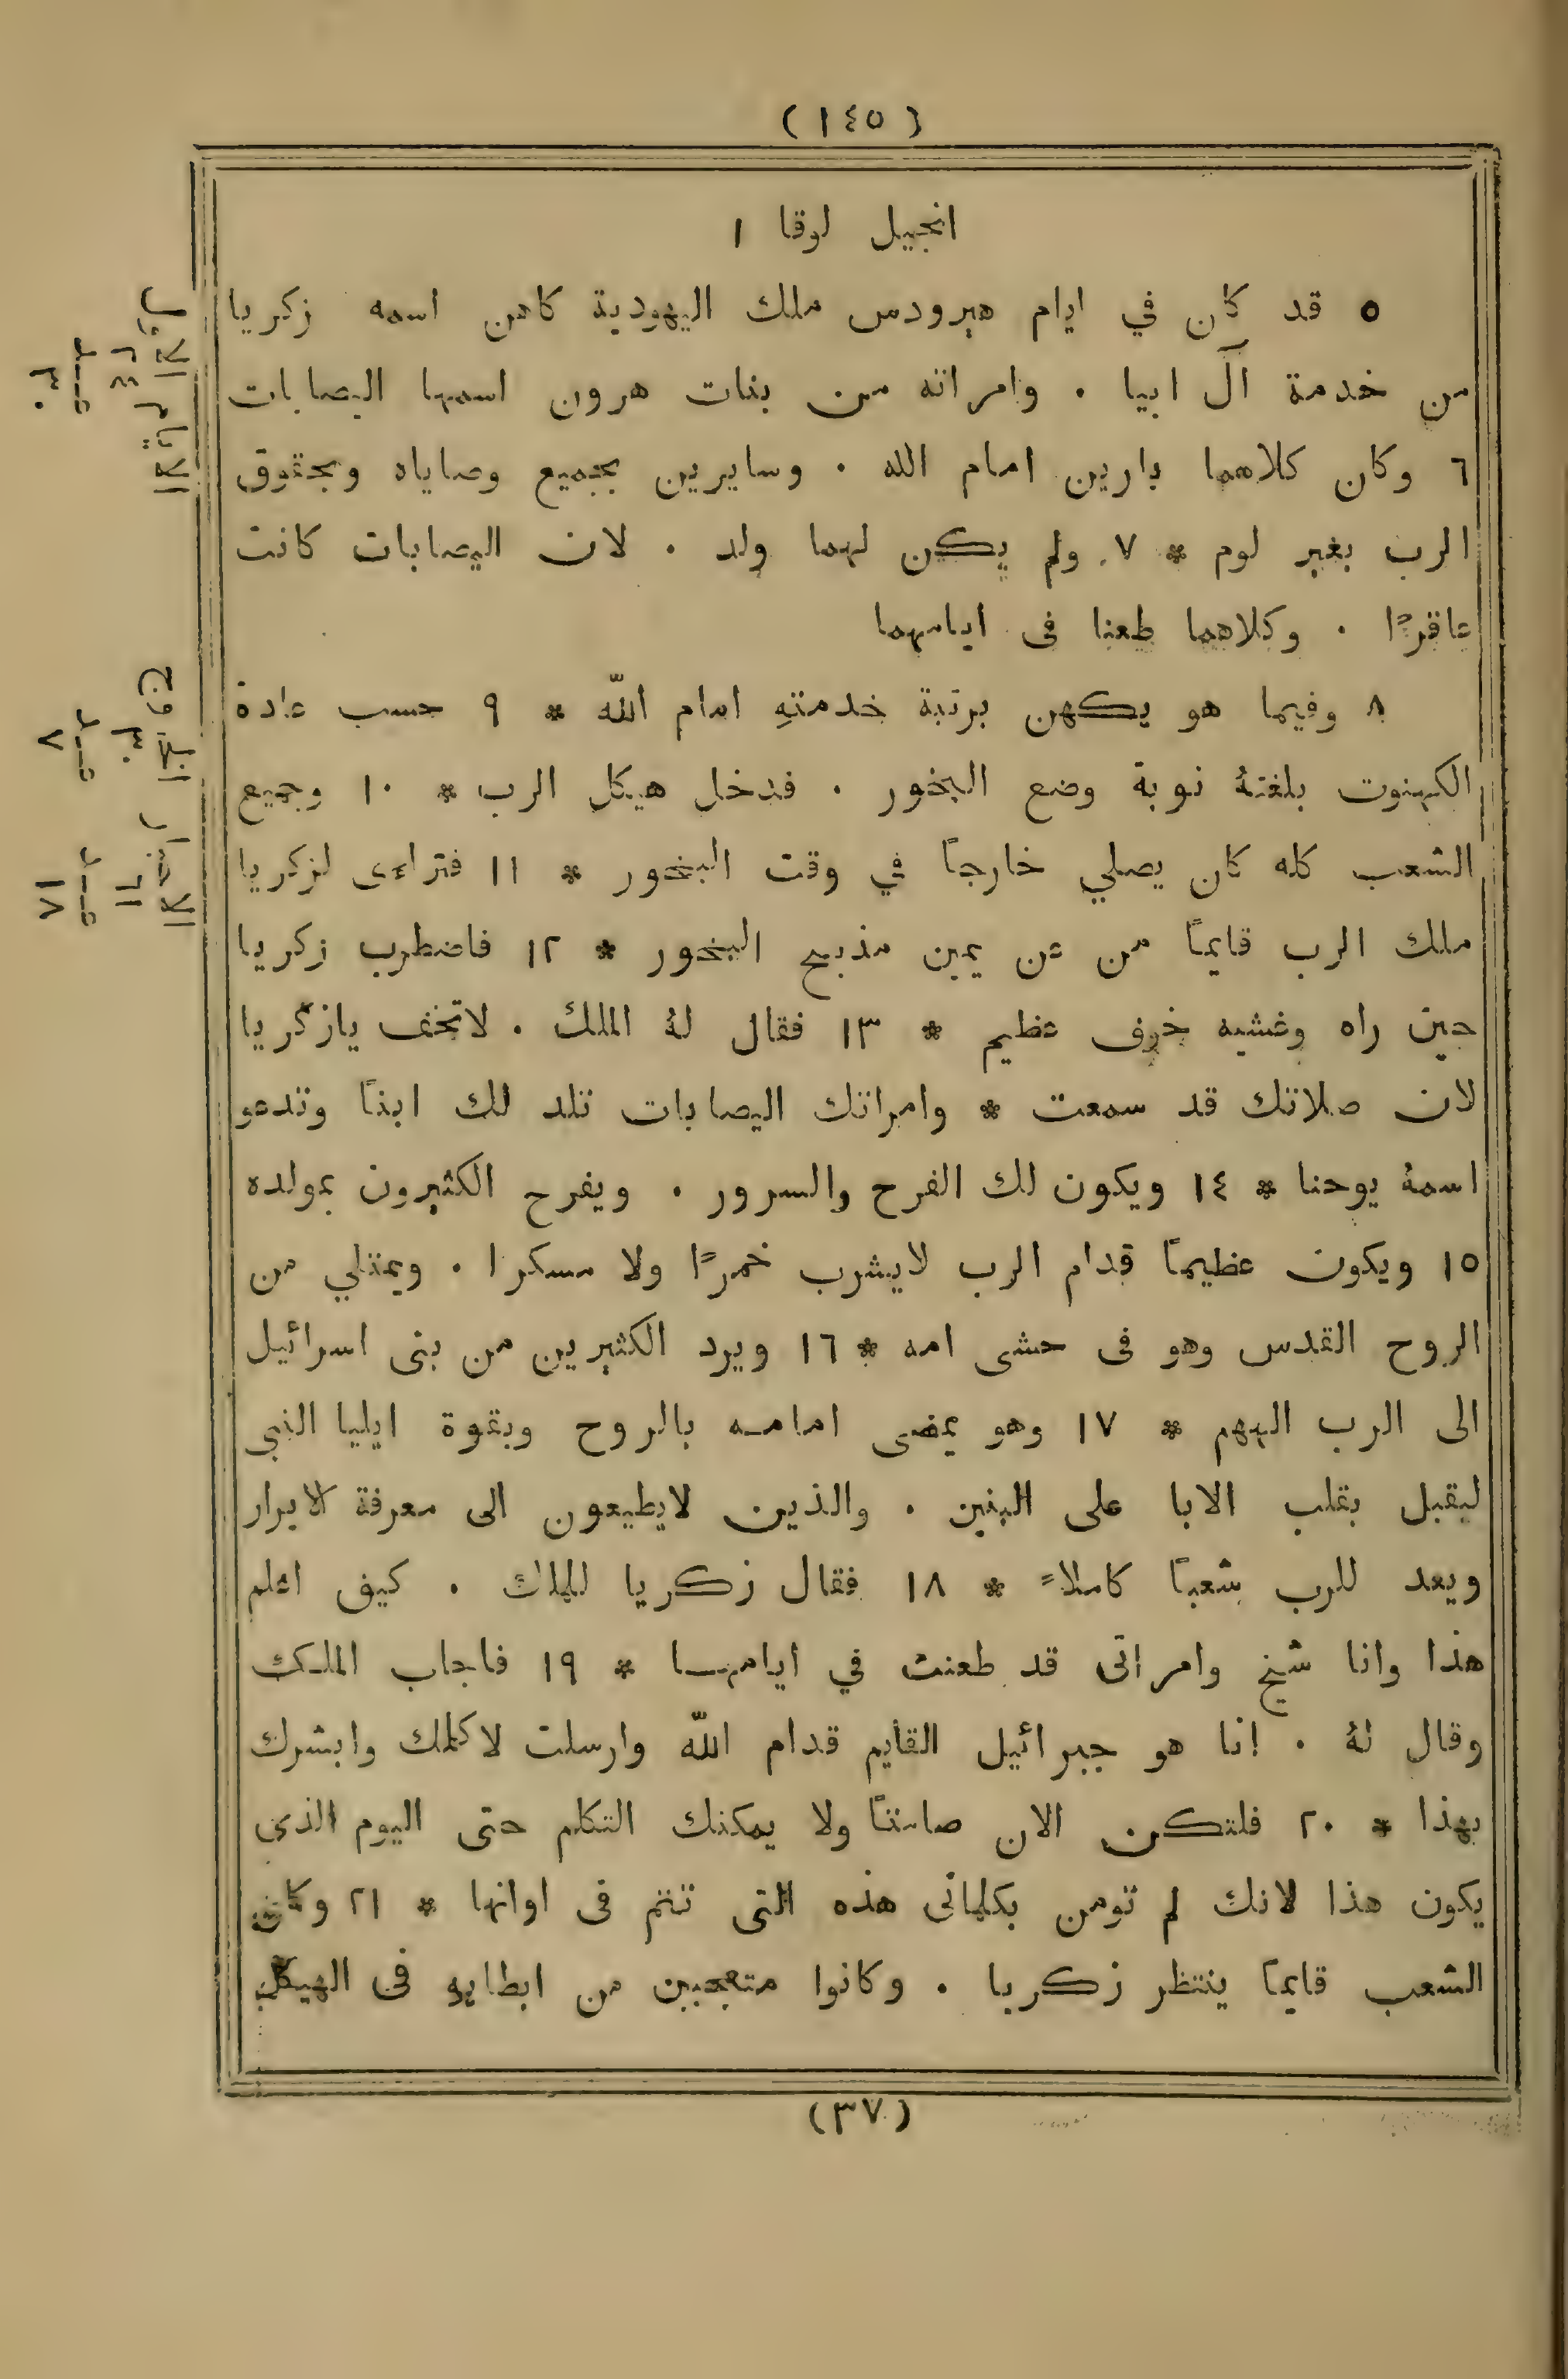 (١٤٥)
انجيل لوقا ١
٥ قد كان في ايام هيرودس ملك اليهودية كاهن اسمه زكريا
من خدمة آل ابيا ٠ وامراته من بنات هرون اسمها اليصابات
٦ وكان كلاهما بارين امام الله ٠ وسايرين بجميع وصاياه وبحقوق
الرب بغير لوم * ٧ ولم يكن لهما ولد ٠ لان اليصابات كانت
عاقرًا ٠ وكلاهما طعنا فى ايامهما
٨ وفيما هو يكهن برتبة خدمتهِ امام اللّه * ٩ حسب عادة
الكهنوت بلغتهُ نوبة وضع البخور ٠ فدخل هيكل الرب * ١٠ وجميع
الشعب كله كان يصلي خارجاً في وقت البخور * ١١ فتراءى لزكريا
ملك الرب قايماً من عن يمين مذبح البخور * ١٢ فاضطرب زكريا
حين راه وغشيه خوف عظيم * ١٣ فقال لهُ الملك ٠ لاتخف يازكريا
لان صلاتك قد سمعت * وامراتك اليصابات تلد لك ابناً وتدعو
اسمهُ يوحنا * ١٤ ويكون لك الفرح والسرور ٠ ويفرح الكثيرون بمولده
١٥ ويكون عظيماً قدام الرب لايشرب خمرًا ولا مسكرا ٠ ويمتلي من
الروح القدس وهو فى حشى امه * ١٦ ويرد الكثيرين من بنى اسرائيل
الى الرب الههم * ١٧ وهو يمضى امامه بالروح وبقوة ايليا النبى
ليقبل بقلب الابا على البنين ٠ والذين لايطيعون الى معرفة الابرار
ويعد للرب شعباً كاملاً * ١٨ فقال زكريا للملاك ٠ كيف اعلم
هذا وانا شيخ وامراتى قد طعنت في ايامها * ١٩ فاجاب الملك
وقال لهُ ٠ انا هو جبرائيل القايم قدام اللّه وارسلت لاكلمك وابشرك
بهذا * ٢٠ فلتكن الان صامتاً ولا يمكنك التكلم حتى اليوم الذى
يكون هذا لانك لم تومن بكلماتى هذه التى تتم فى اوانها * ٢١ وكان
الشعب قايماً ينتظر زكريا ٠ وكانوا متعجبين من ابطايهِ فى الهيكل
(٣٧)